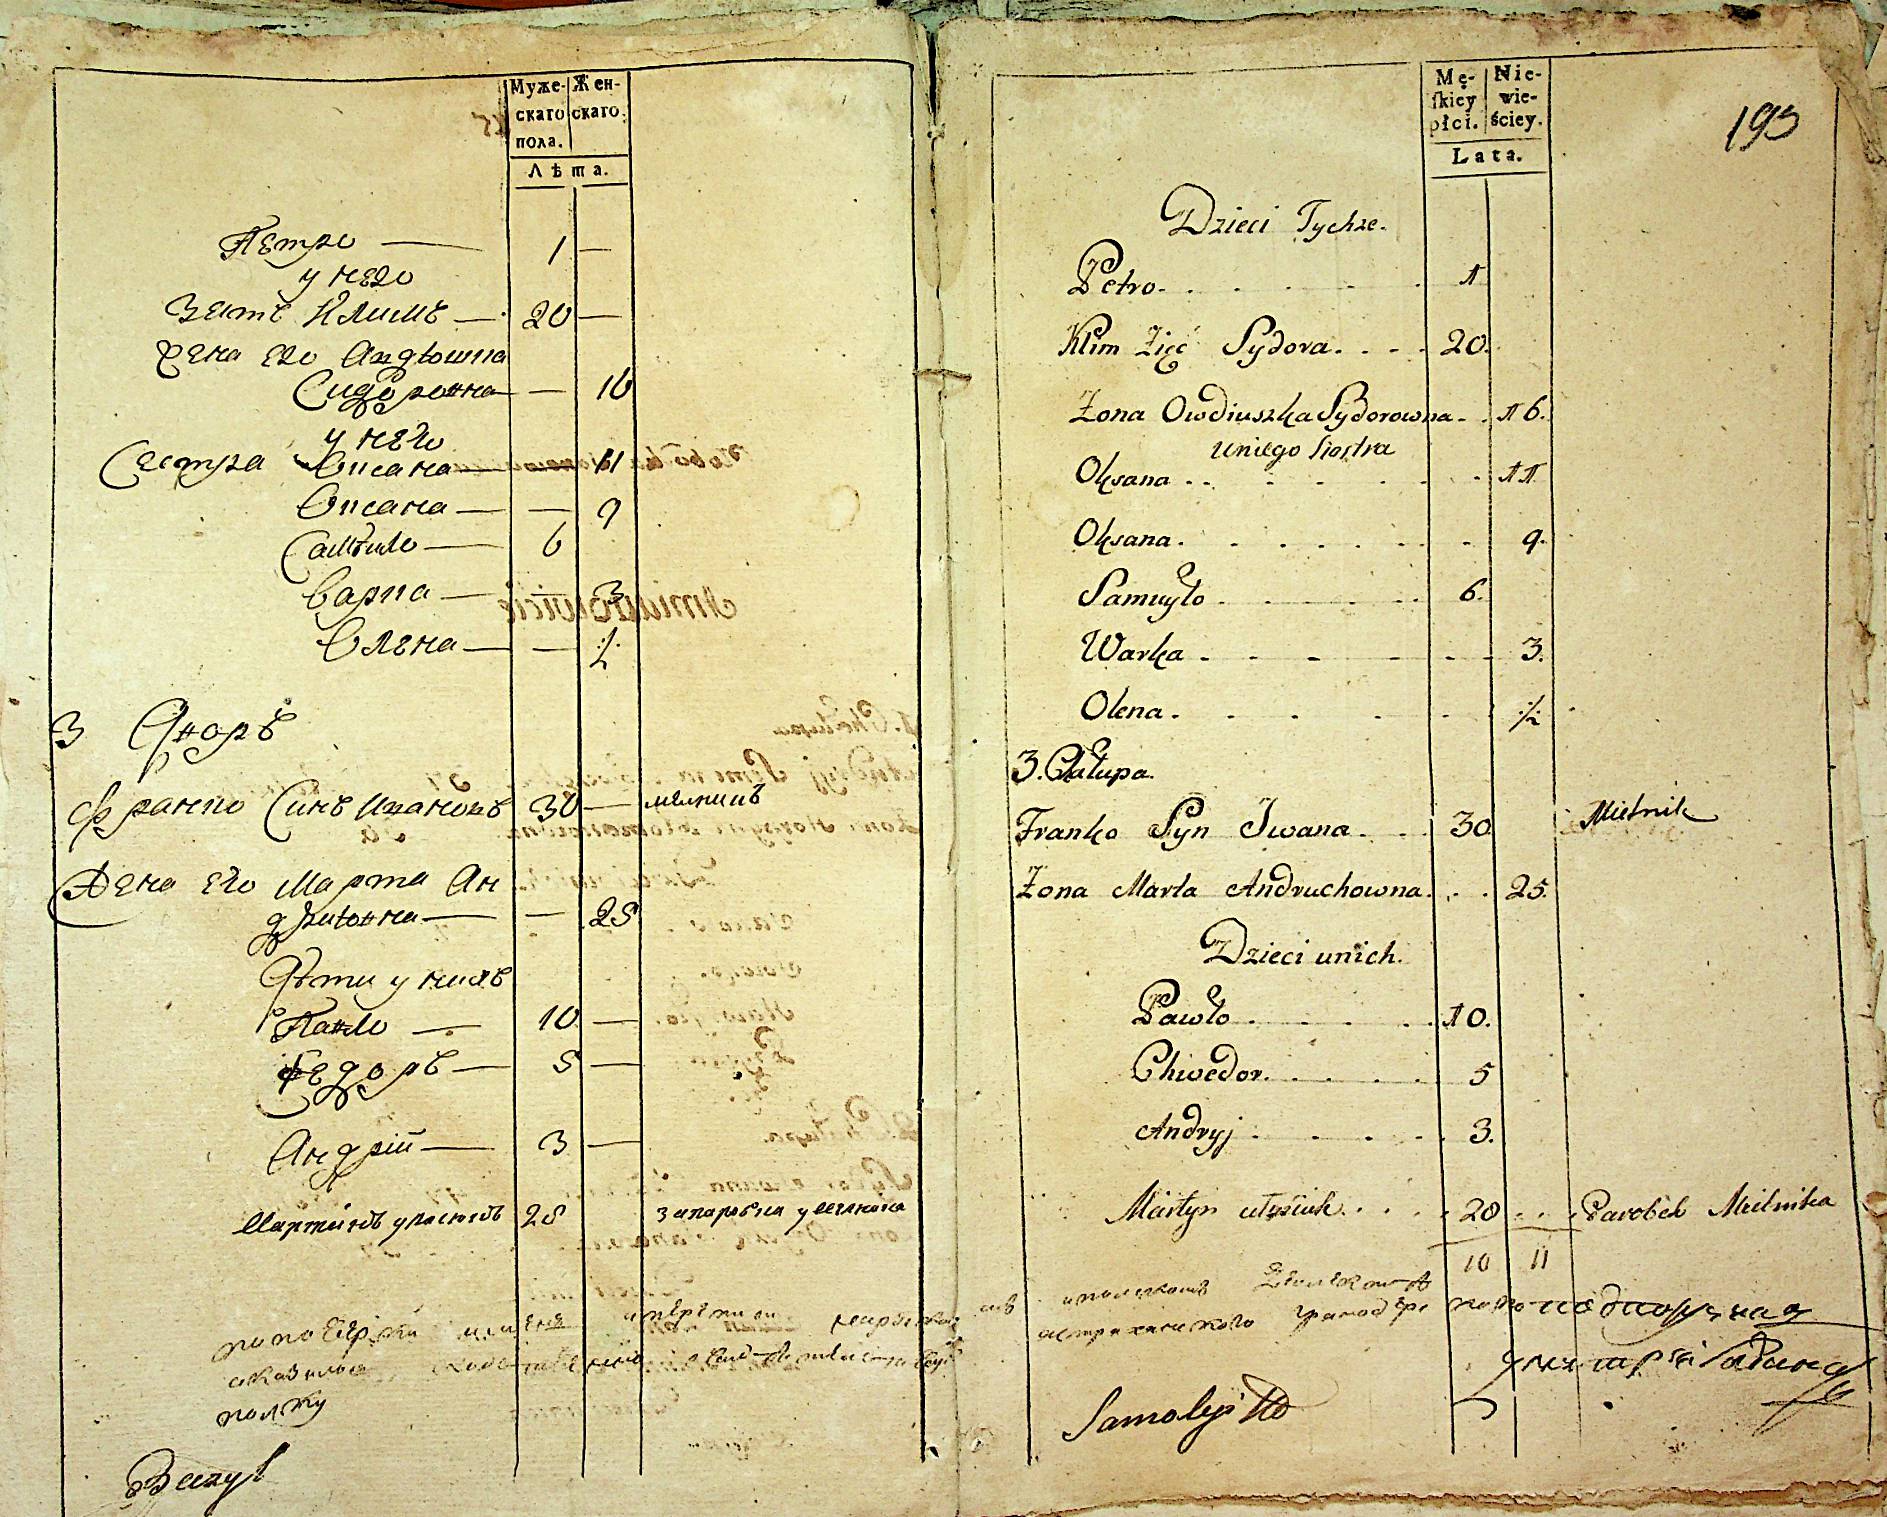 Муже-
скаго
пола.
Жен-
скаго.
Лѣта.
Петро — 1 —
у него
Зять Климъ — 20 —
Жена его Авдюшка
Сидоровна — 16
у него
Сестра Оксана — 11
Оксана — — 9
Самуило — 6
Варка — — 3
Олена — — ½
3 Дворъ
Франко Синъ Ивановъ 30 — мелникъ
Жена его Марта Ан
друховна — — 25
Дѣти у нихъ
Павло — 10 —
Федоръ — 5 —
Андрій — 3 —
Мартинъ 28 запаробка у мелника
полку
Bazyl
Mę-
ſkiey
płci.
Nie-
wie-
ściey.
Lata.
193
Dzieci Tychże.
Petro. 1
Klim Zięć Sydora. 20.
Żona Owdiuszka Sydorowna 16.
uniego Siostra
Oksana 11
Oksana. 9.
Samuyło 6.
Warka 3.
Olena. ½
3. Chałupa.
Franko Syn Iwana. 30 Mielnik
Żona Marta Andruchowna. 25.
Dzieci unich.
Pawło 10.
Chwedor. 5
Andryj 3.
Martyn 28 Parobek Mielnika
10 11